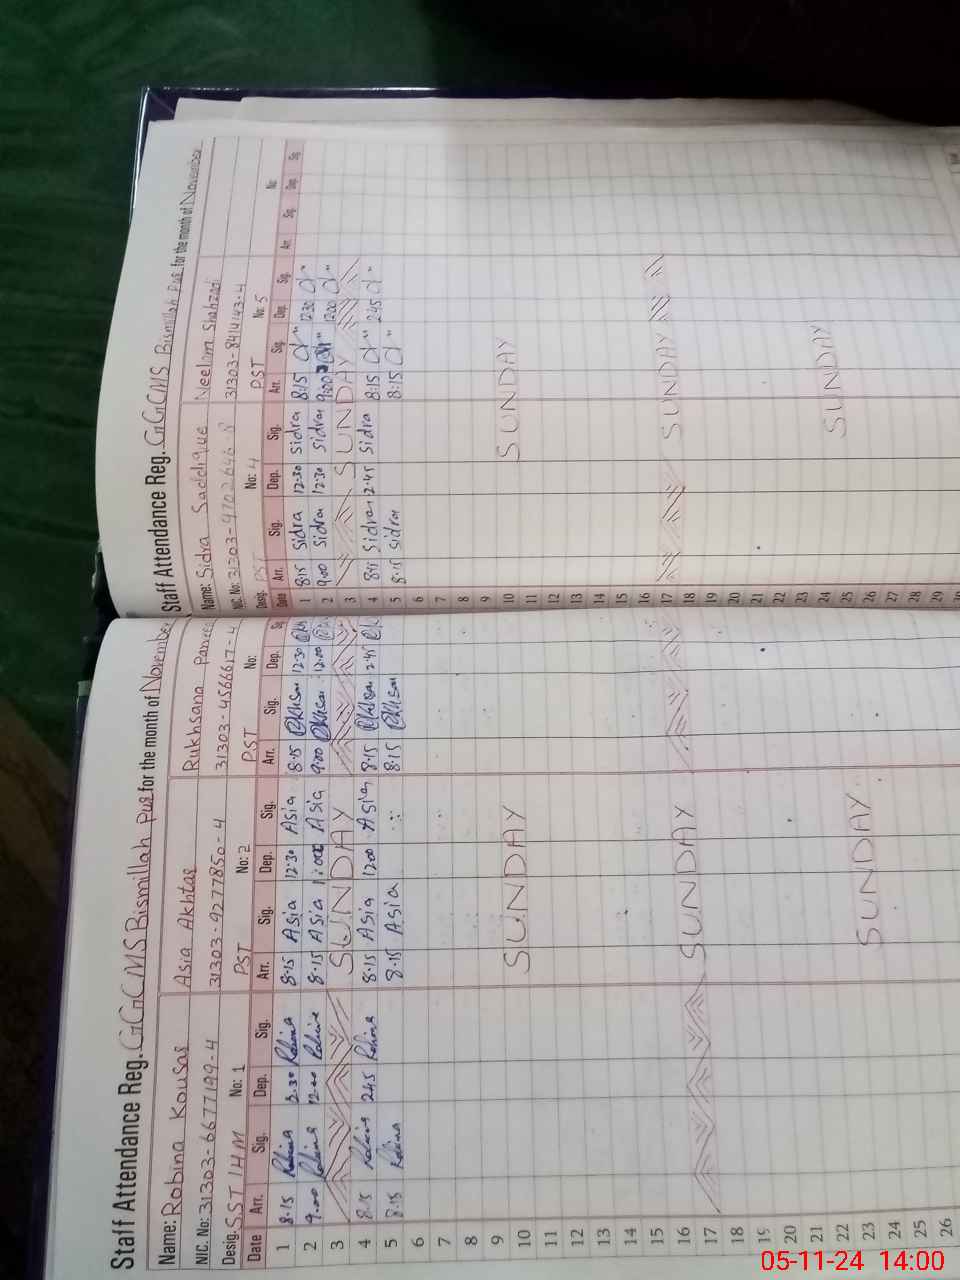 Staff Attendance Reg. GGCMS Bismillah Pur for the month of November
Name: Robina Kousar Asia Akhtar Rukhsana Parveen
NIC. No: 31303-6677199-4 31303-9277850-4 31303-4566617-4
Desig. SST IHM No: 1 PST No: 2 PST No:
Date Arr. Sig. Dep. Sig. Arr. Sig. Dep. Sig. Arr. Sig. Dep.
1 8.15 Robina Robina 8.15 Asia 12:30 Asia 8.15 12.30
2 9.00 Robina 12.00 Robina 8.15 Asia Asia 9.00 12.00
3 SUNDAY
4 8.15 Robina 245 Robina 8.15 Asia 1200 Asia 8.15 2.45
5 8.15 Robina 8.15 Asia 8.15
6
7
8
9
10 SUNDAY
11
12
13
14
15
16
17 SUNDAY
18
19
20
21
22
23 SUNDAY
24
25
26
Staff Attendance Reg. GGCMS Bismillah Pur for the month of November
Name: Sidra Saddique Neelam Shahzadi
NIC. No: 31303-9702646-8 31303-8414143-4
Desig. PST No: 4 PST No: 5 No:
Date Arr. Sig. Dep. Sig. Arr. Sig. Dep. Sig. Arr. Sig. Dep. Sig.
1 8:15 Sidra 12:30 Sidra 8:15 12:30
2 9:00 Sidra 12:30 Sidra 9:00 12:00
3 SUNDAY
4 8:15 Sidra 2:45 Sidra 8:15 2:45
5 8:15 Sidra 8:15
6
7
8
9
10 SUNDAY
11
12
13
14
15
16
17 SUNDAY
18
19
20
21
22
23
24 SUNDAY
25
26
27
28
29
30
05-11-24 14:00